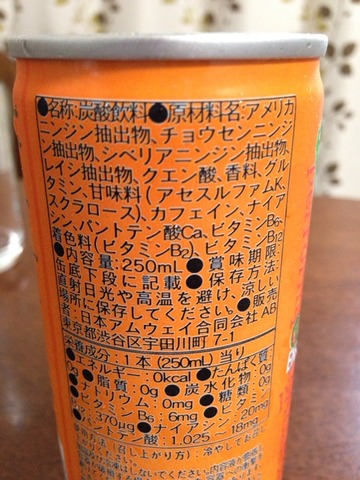 ●名称:炭酸飲料●原材料名:アメリカ
ニンジン抽出物、チョウセンニンジ
ン抽出物、シベリアニンジン抽出物、
レイシ抽出物、クエン酸、香料、グル
タミン、甘味料(アセスルファムK、
スクラロース)、カフェイン、ナイア
シン、パントテン酸Ca、ビタミンB6、
着色料(ビタミンB2)、ビタミンB12
●内容量:250mL●賞味期限:
缶底下段に記載●保存方法:
直射日光や高温を避け、涼しい
場所に保存してください。●販売
者:日本アムウェイ合同会社AB
東京都渋谷区宇田川町7-1
栄養成分:1本(250mL)当り
エネルギー:0kcal●たんぱく質:
0g●脂質:0g●炭水化物:0g
ナトリウム:0mg●糖類:0g
ビタミンB6:6mg●ビタミン
370μg●ナイアシン:20mg
●パントテン酸:1.025~18mg
使用方法(召し上がり方):冷やしてお召